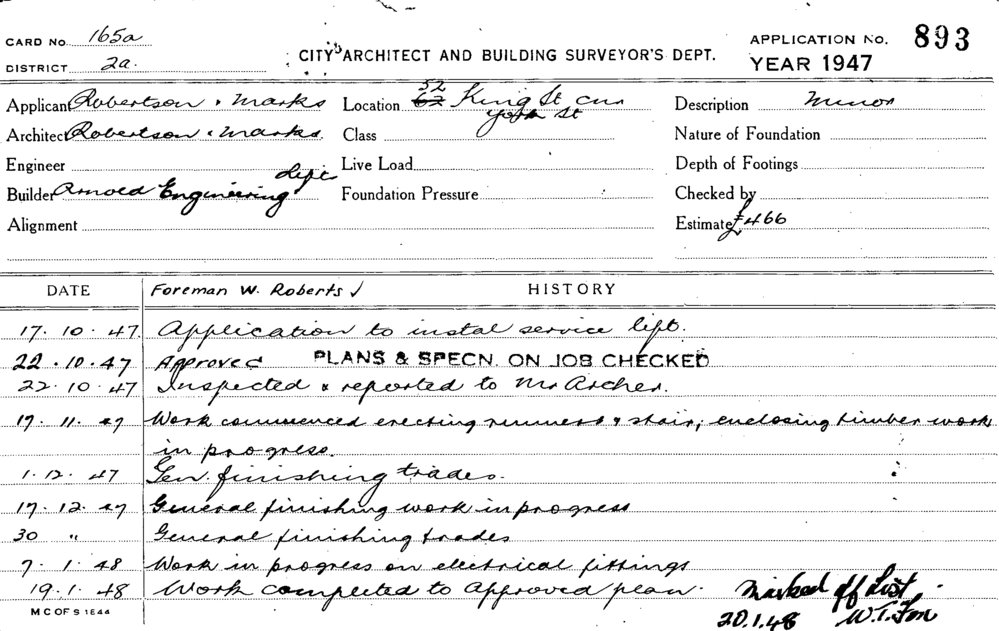 CARD No. 165a
DISTRICT 2a.
CITY ARCHITECT AND BUILDING SURVEYOR'S DEPT.
APPLICATION No. 893
YEAR 1947
Applicant Robertson & Marks
Architect Robertson & Marks.
Engineer
Builder Arnold Engineering Dept
Alignment
52
Location 62 King St cnr
York St
Class
Live Load
Foundation Pressure
Description Minor
Nature of Foundation
Depth of Footings
Checked by
Estimate £466
DATE Foreman W. Roberts ✓ HISTORY
17.10.47. Application to instal service lift.
22.10.47 Approved PLANS & SPECN. ON JOB CHECKED
22.10.47 Inspected & reported to Mr Archer.
17.11.47 Work commenced erecting runners & stair; enclosing timber work
in progress.
1.12.47 Gen. finishing trades.
17.12.47 General finishing work in progress
30 " General finishing trades
7.1.48 Work in progress on electrical fittings
19.1.48 Work completed to approved plan.
Marked off List
20.1.48 W.T.
M C OF S 1844